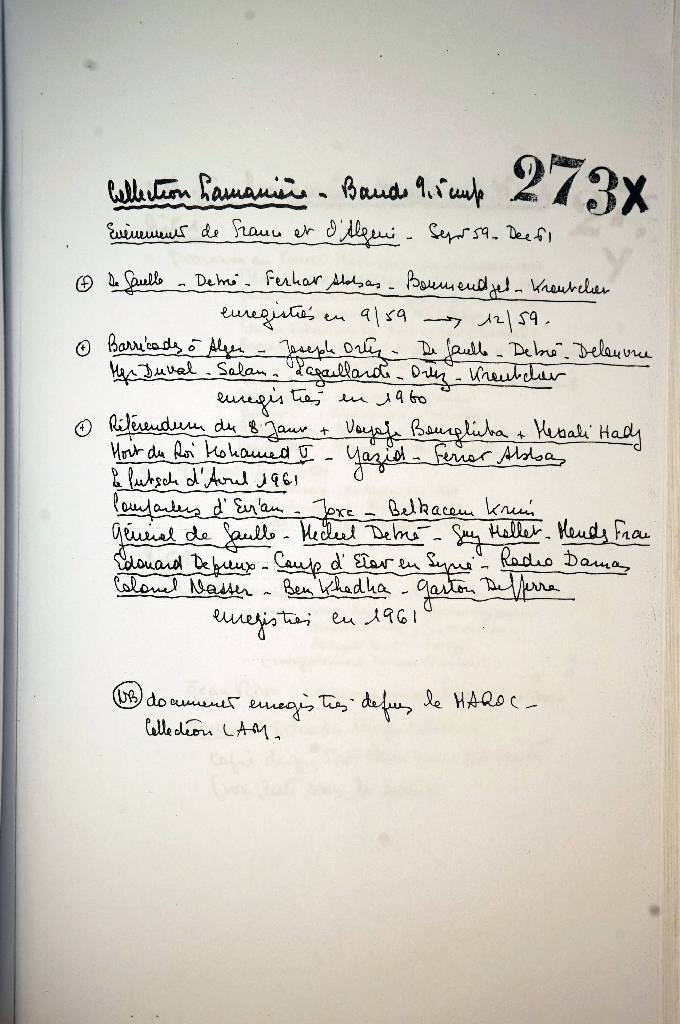 Collection Lamanière - Bande 9,5 cmp 273x
Evènements de France et d'Algerie - Sept 59 - Dec 61
+ De Gaulle - Debré - Ferhat Abbas - Boumendjel - Kroutchev
enregistrés en 9/59 → 12/59.
+ Barricades à Alger - Joseph Ortiz - De Gaulle - Debré - Delouvrie
Mgr Duval - Salan - Lagaillarde - Ortiz - Kroutchev
enregistrés en 1960
+ Référendum du 8 Janv + Voyage Bourghiba + Messali Hadj
Mort du Roi Mohamed V - Yazid - Ferrat Abbas
Le Putsch d'Avril 1961
d'Evian - Joxe - Belkacem Krim
Général de Gaulle - Michel Debré - Guy Mollet - Mendès Fran
Edouard Depreux - Coup d'Etat en Syrie - Radio Damas
Colonel Nasser - Ben Khedha - Gaston Defferre
enregistrés en 1961
NB documents enregistrés depuis le MAROC -
Collection LAM.